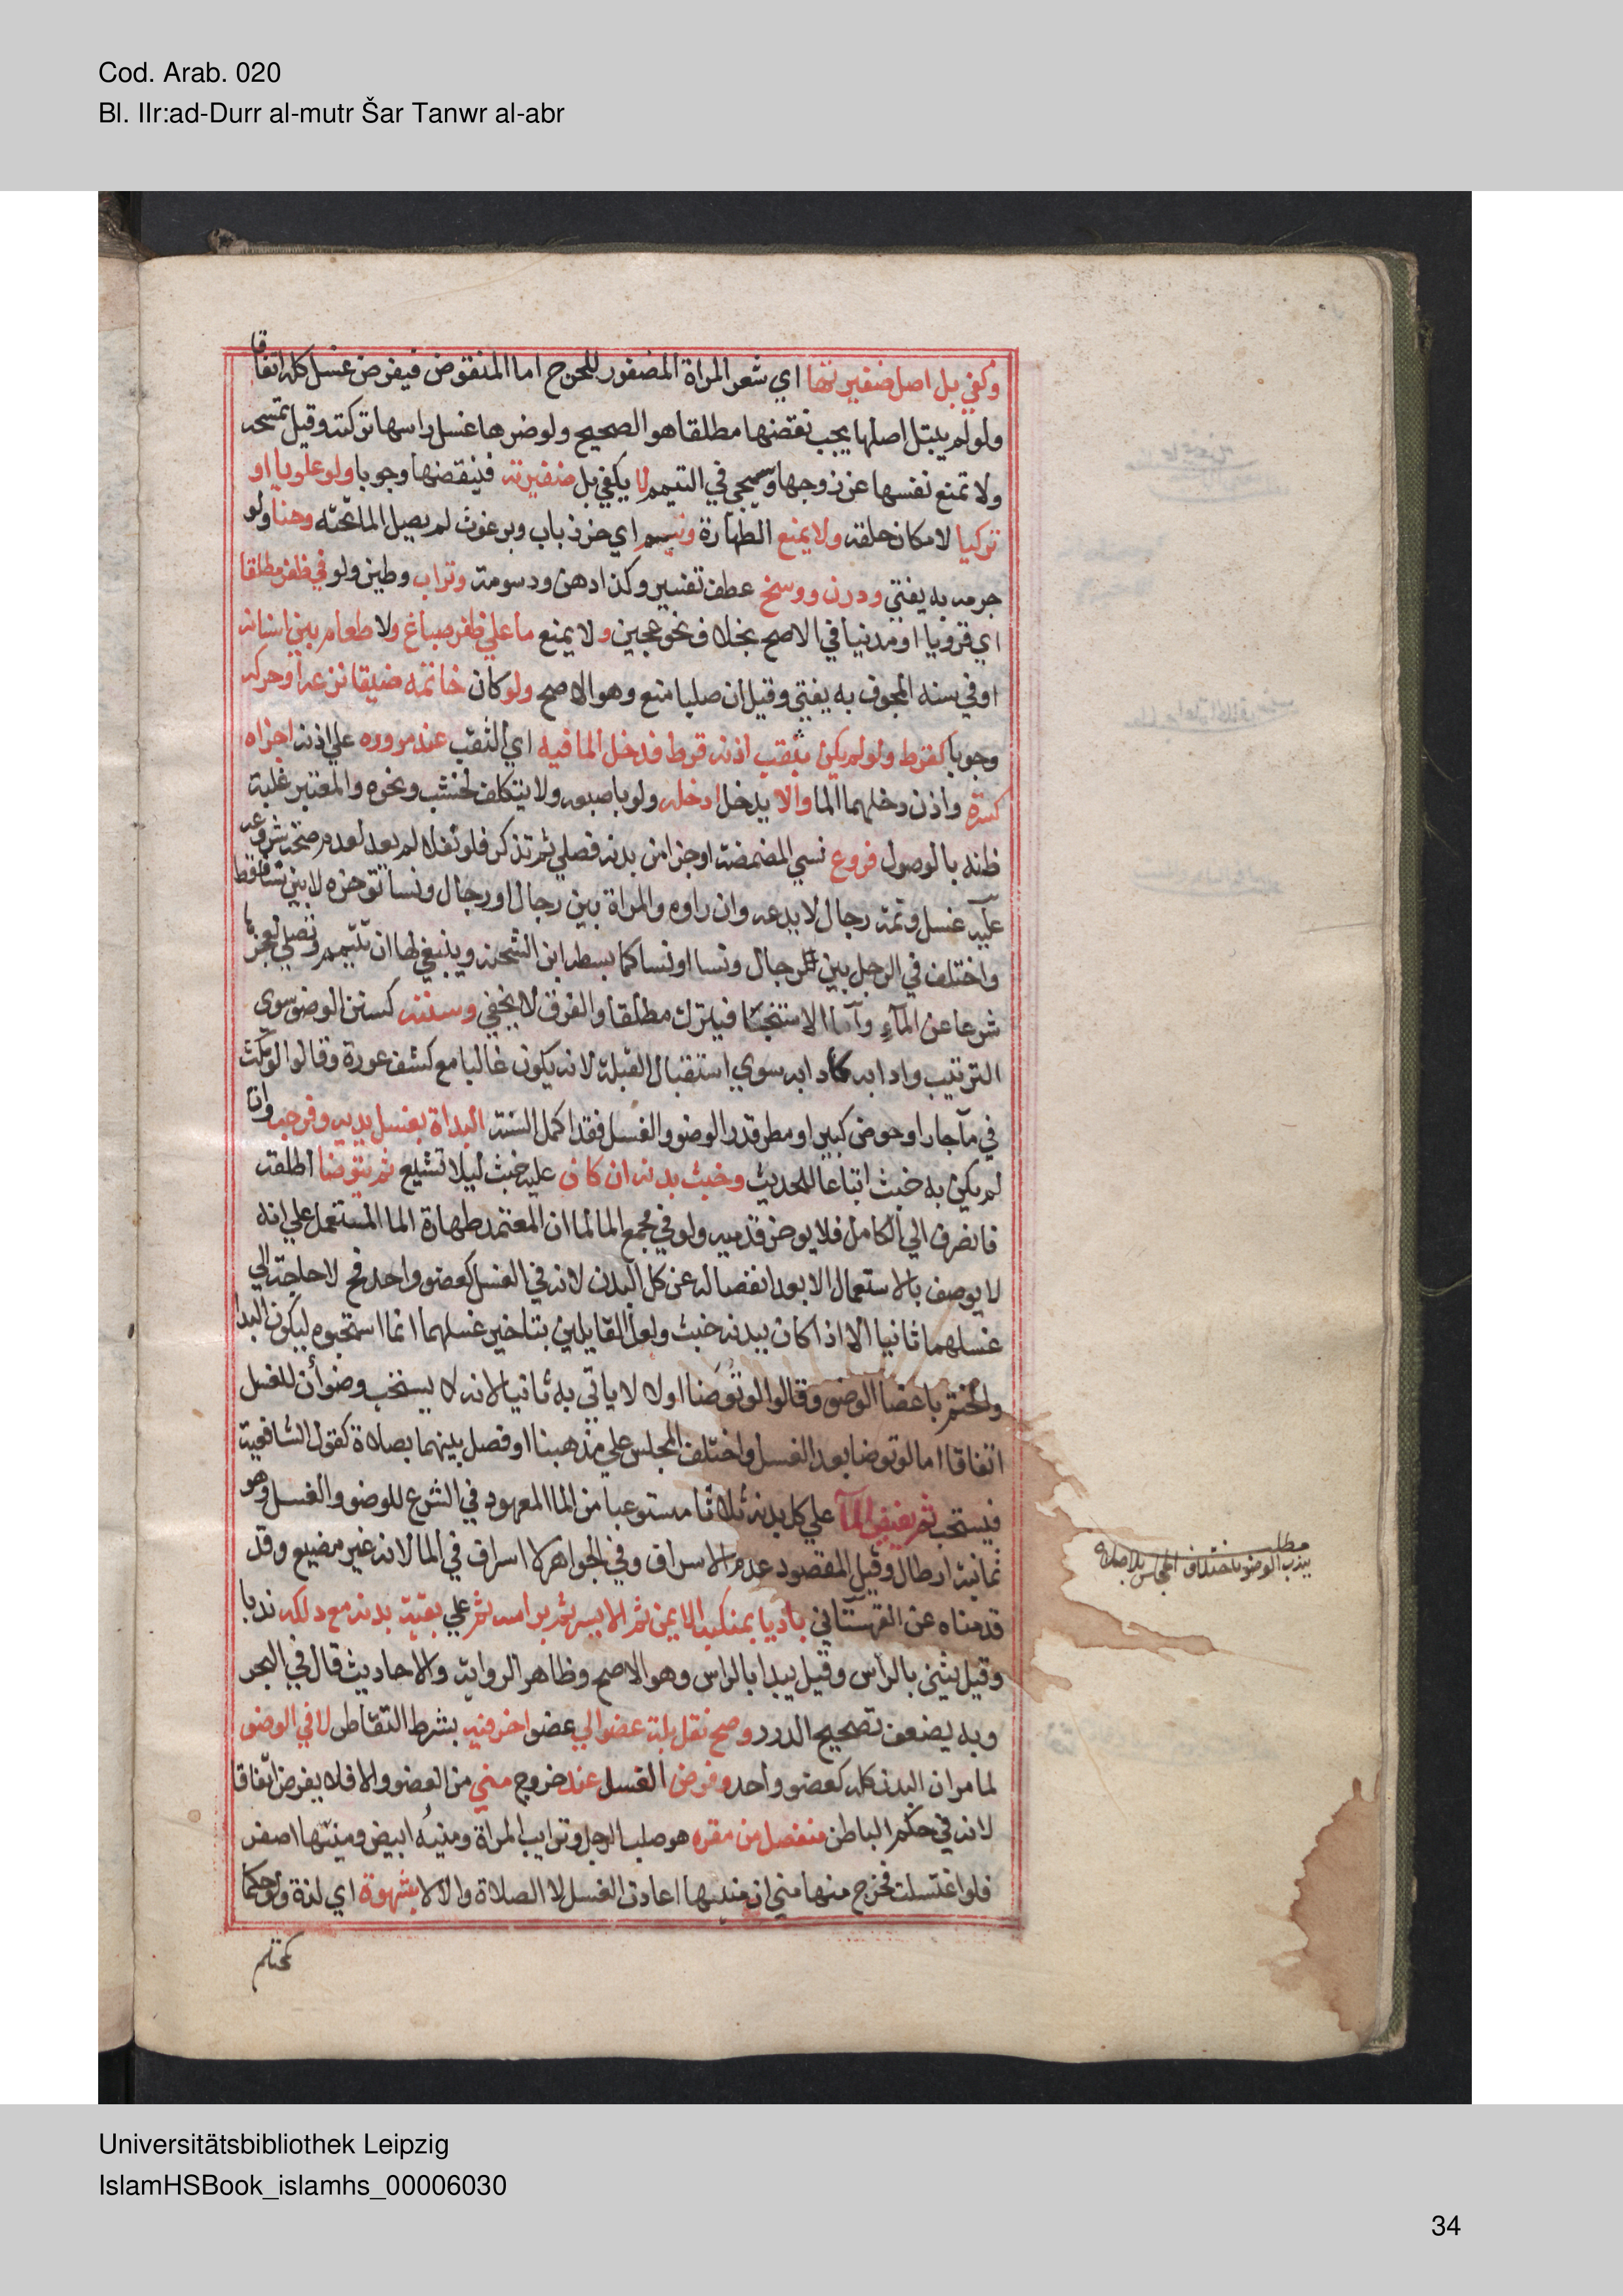 Cod. Arab. 020
Bl. IIr:ad-Durr al-mutr Šar Tanwr al-abr
وكفي بل اصل ضفيرتها اي شعر المراة المضفور للحرج اما المنقوض فيفرض غسل كله اتفاقا
ولو لم يبتل اصلها يجب نقضها مطلقا هو الصحيح ولو ضرها غسل راسها تركته وقيل تمسحه
ولا تمنع نفسها عن زوجها وسيجي في التيمم لا يكفي بل ضفيرته فينقضها وجوبا ولو علويا او
تركيا لامكان حلقه ولا يمنع الطهارة ونيم اي خرء ذباب وبرغوث لم يصل الما تحته وحنا ولو
جرمه به يفتي ودرن ووسخ عطف تفسير وكذا دهن ودسومة وتراب وطين ولو في ظفر مطلقا
اي قرويا او مدنيا في الاصح بخلاف نحو عجين ولا يمنع ما علي ظفر صباغ ولا طعام بين اسنانه
او في سنه المجوف به يفتي وقيل ان صلبا منع وهو الاصح ولو كان خاتمه ضيقا نزعه او حركه
وجوبا كقرط ولو لم يكن بثقب اذنه قرط فدخل الما فيه اي الثقب عند مروره علي اذنه اجزاه
كسرة واذن دخلهما الما والا يدخل ادخله ولو باصبعه ولا يتكلف لخشب ونحوه والمعتبر غلبة
ظنه بالوصول فروع نسي المضمضة او جزا من بدنه فصلي ثم تذكر فلو نفلا لم يعد لعدم صحة شروعه
عليه غسل وثمة رجال لا يدعه وان راوه والمراة بين رجال او رجال ونسا توخره لا بين نسا فقط
واختلف في الرجل بين رجال ونسا او نسا كما بسطه ابن الشحنه وينبغي لها ان تتيمم وتصلي لعجزها
شرعا عن الماء واما الاستنجا فيترك مطلقا والفرق لا يخفي وسننه كسنن الوضو سوي
الترتيب وادابه كادابه سوي استقبال القبلة لانه يكون غالبا مع كشف عورة وقالوا لو مكث
في ما جار او حوض كبير او مطر قدر الوضو والغسل فقد اكمل السنة البداة بغسل يديه وفرجه وان
لم يكن به خبث اتباعا للحديث وخبث بدنه ان كان عليه خبث ليلا تشيع ثم يتوضا اطلقه
فانصرف الي الكامل فلا يوخر قدميه ولو في مجمع الما لما ان المعتمد طهارة الما المستعمل علي انه
لا يوصف بالاستعمال الا بعد انفصاله عن كل البدن لانه في الغسل كعضو واحد فح لا حاجة الي
غسلهما ثانيا الا اذا كان ببدنه خبث ولعل القايلين بتاخير غسلهما انما استحبوه ليكون البدا
والختم باعضا الوضو وقالوا لو توضا اولا لا ياتي به ثانيا لانه لا يستحب وضوأن للغسل
اتفاقا اما لو توضا بعد الغسل واختلف المجلس علي مذهبنا او فصل بينهما بصلاة كقول الشافعية
فيستحب ثم يفيض الما علي كل بدنه ثلاثا مستوعبا من الما المعهود في الشرع للوضو والغسل وهو
ثمانية ارطال وقيل المقصود عدم الاسراف وفي الجواهر لا اسراف في الما لانه غير مضيع وقد
قدمناه عن القهستاني باديا بمنكبه الايمن ثم الايسر ثم براسه ثم علي بقية بدنه مع دلكه ندبا
وقيل يثني بالراس وقيل يبدا بالراس وهو الاصح وظاهر الرواية والاحاديث قال في البحر
وبه يضعف تصحيح الدرر وصح نقل بلة عضو الي عضو اخر فيه بشرط التقاطر لا في الوضو
لما مر ان البدن كله كعضو واحد وفرض الغسل عند خروج مني من العضو والا فلا يفرض اتفاقا
لانه في حكم الباطن منفصل من مقره هو صلب الرجل وترايب المراة ومنيه ابيض ومنيها اصفر
فلو اغتسلت فخرج منها مني ان منيها اعادت الغسل لا الصلاة والا لا بشهوة اي لذة ولو حكما
كمحتلم
مطلب
يندب الوضو باختلاف المجالس بلا صلاة
Universitätsbibliothek Leipzig
IslamHSBook_islamhs_00006030
34